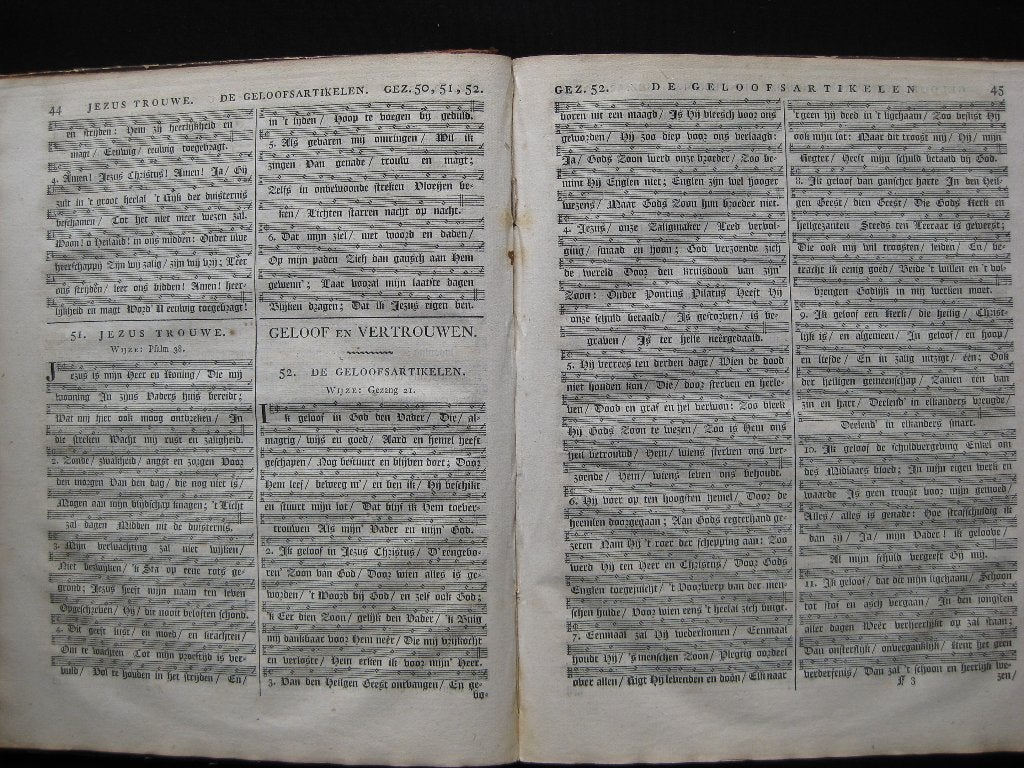 44 JEZUS TROUWE. DE GELOOFSARTIKELEN. GEZ. 50, 51, 52.
en strijden: Hem zij heerlijkheid en
magt/ Eeuwig/ eeuwig toegebragt.
4. Amen! Jezus Christus! Amen! Ja/ Gij
zult in 't groot heelal 't Rijk der duisternis
beschamen/ Tot het niet meer wezen zal.
Woon! o Heiland! in ons midden: Onder uwe
heerschappij Zijn wij zalig/ zijn wij vrij; Leer
ons strijden/ leer ons bidden! Amen! heer-
lijkheid en magt Word' U eeuwig toegebragt!
51. JEZUS TROUWE.
WIJZE: Psalm 38.
Jezus is mijn Heer en Koning/ Die mij
wooning In zijns Vaders huis bereidt;
Wat mij hier ook moog ontbreken/ In
die streken Wacht mij rust en zaligheid.
2. Zonde/ zwakheid/ angst en zorgen Voor
den morgen Van den dag/ die nog niet is/
Mogen aan mijn blijdschap knagen; 't Licht
zal dagen Midden uit de duisternis.
3. Mijn verwachting zal niet wijken/
Niet bezwijken/ 'k Sta op eene rots ge-
grond; Jezus heeft mijn naam ten leven
Opgeschreven/ Hij/ die nooit beloften schond.
4. Dit geeft lust/ en moed/ en krachten/
Om te wachten Tot mijn proeftijd is ver-
vuld/ Vol te houden in het strijden/ En/
in 't lijden/ Hoop te voegen bij geduld.
5. Als gevaren mij omringen/ Wil ik
zingen Van genade/ trouw en magt;
Zelfs in onbewoonde streken Vloeijen be-
ken/ Lichten starren nacht op nacht.
6. Dat mijn ziel/ met woord en daden/
Op mijn paden Zich dan gansch aan Hem
gewenn'; Laat vooral mijn laatste dagen
Blijken dragen; Dat ik Jezus eigen ben.
GELOOF EN VERTROUWEN.
52. DE GELOOFSARTIKELEN.
WIJZE: Gezang 21.
Ik geloof in God den Vader/ Die/ al-
magtig/ wijs en goed/ Aard en hemel heeft
geschapen/ Nog bestuurt en blijven doet; Door
Hem leef/ beweeg m'/ en ben ik/ Hij beschikt
en stuurt mijn lot/ Dat blijf ik Hem toever-
trouwen Als mijn' Vader en mijn' God.
2. Ik geloof in Jezus Christus/ D' eengebo-
ren' Zoon van God/ Door wien alles is ge-
worden/ 't Woord bij God/ en zelf ook God;
'k Eer dien Zoon/ gelijk den Vader/ 'k Buig
mij dankbaar voor Hem neêr/ Die mij vrijkocht
en verloste/ Hem erken ik voor mijn' Heer.
3. Van den Heilgen Geest ontvangen/ En ge-
bo-
GEZ. 52. DE GELOOFSARTIKELEN 45
boren uit een maagd/ Is Hij vleesch voor ons
geworden/ Hij zoo diep voor ons verlaagd:
Ja/ Gods Zoon werd onze broeder/ Zoo be-
mint Hij Englen niet; Englen zijn wel hooger
wezens/ Maar Gods Zoon hun broeder niet.
4. Jezus/ onze Zaligmaker/ Leed vervol-
ging/ smaad en hoon; God verzoende zich
de wereld Door den kruisdood van zijn'
Zoon: Onder Pontius Pilatus Heeft Hij
onze schuld betaald/ Is gestorven/ is be-
graven/ Is ter helle neêrgedaald.
5. Hij verrees ten derden dage/ Wien de dood
niet houden kon/ Die/ door sterven en herle-
ven/ Dood en graf en hel verwon: Zoo bleek
Hij Gods Zoon te wezen/ Zoo is Hem ons
heil betrouwd/ Hem/ wiens sterven ons ver-
zoende/ Hem/ wiens leven ons behoudt.
6. Hij voer op ten hoogsten hemel/ Door de
heemlen doorgegaan; Aan Gods regterhand ge-
zeten Nam Hij 't roer der schepping aan: Zoo
werd Hij ten Heer en Christus/ Door Gods
Englen toegejuicht/ 't Voorwerp van der men-
schen hulde/ Voor wien eens 't heelal zich buigt.
7. Eenmaal zal Hij wederkomen/ Eenmaal
houdt Hij/ 's menschen Zoon/ Plegtig oordeel
over allen/ Rigt Hij levenden en doôn/ Elk naar
't geen hij deed in 't ligchaam/ Zoo beslist Hij
ook mijn lot: Maar dit troost mij/ Hij/ mijn
Regter/ Heeft mijn schuld betaald bij God.
8. Ik geloof van ganscher harte In den Heil-
gen Geest/ dien Geest/ Die Gods Kerk en
heilgezanten Steeds ten Leeraar is geweest;
Die ook mij wil troosten/ leiden/ En/ be-
tracht ik eenig goed/ Beide 't willen en 't vol-
brengen Godlijk in mij werken moet.
9. Ik geloof een Kerk/ die heilig/ Christ-
lijk is/ en algemeen/ In geloof/ en hoop/
en liefde/ En in zalig uitzigt/ één; Ook
der heiligen gemeenschap/ Zamen één van
zin en hart/ Deelend' in elkanders vreugde/
Deelend' in elkanders smart.
10. Ik geloof de schuldvergeving Enkel om
des Midlaars bloed; In mijn eigen werk en
waarde Is geen troost voor mijn gemoed/
Alles/ alles is genade: Hoe strafschuldig ik
dan zij/ Ja/ mijn Vader! ik geloove/
Al mijn schuld vergeeft Gij mij.
11. Ik geloof/ dat dit mijn ligchaam/ Schoon
tot stof en asch vergaan/ In den jongsten
aller dagen Weêr verheerlijkt op zal staan;
Dan onsterflijk/ onvergankelijk/ Kent het geen
verderfenis/ Dan zal 't schoon en heerlijk we-
F 3 zen/